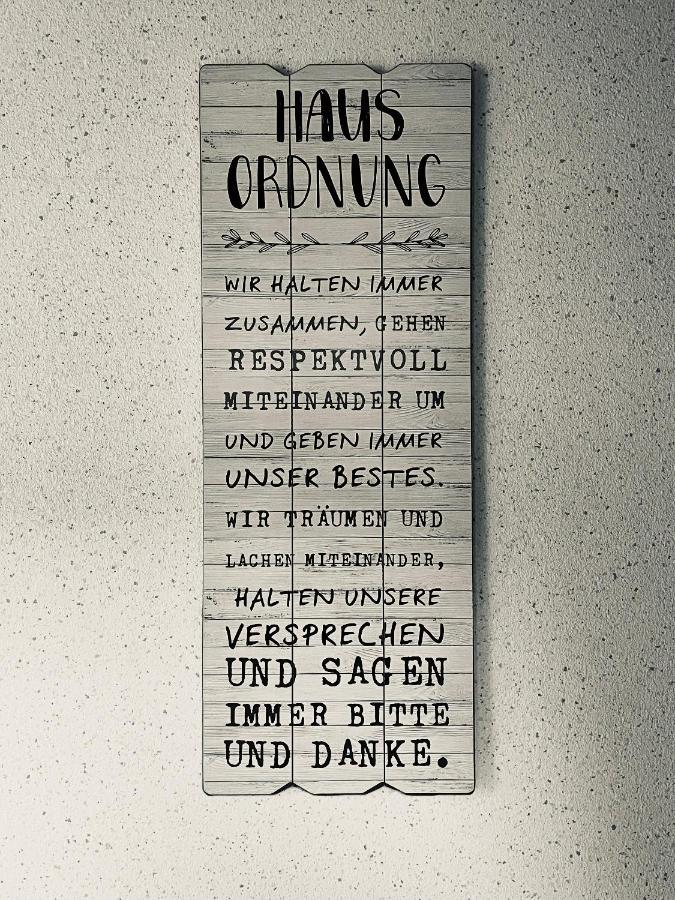 HAUS
ORDNUNG
WIR HALTEN IMMER
ZUSAMMEN, GEHEN
RESPEKTVOLL
MITEINANDER UM
UND GEBEN IMMER
UNSER BESTES.
WIR TRÄUMEN UND
LACHEN MITEINANDER,
HALTEN UNSERE
VERSPRECHEN
UND SAGEN
IMMER BITTE
UND DANKE.